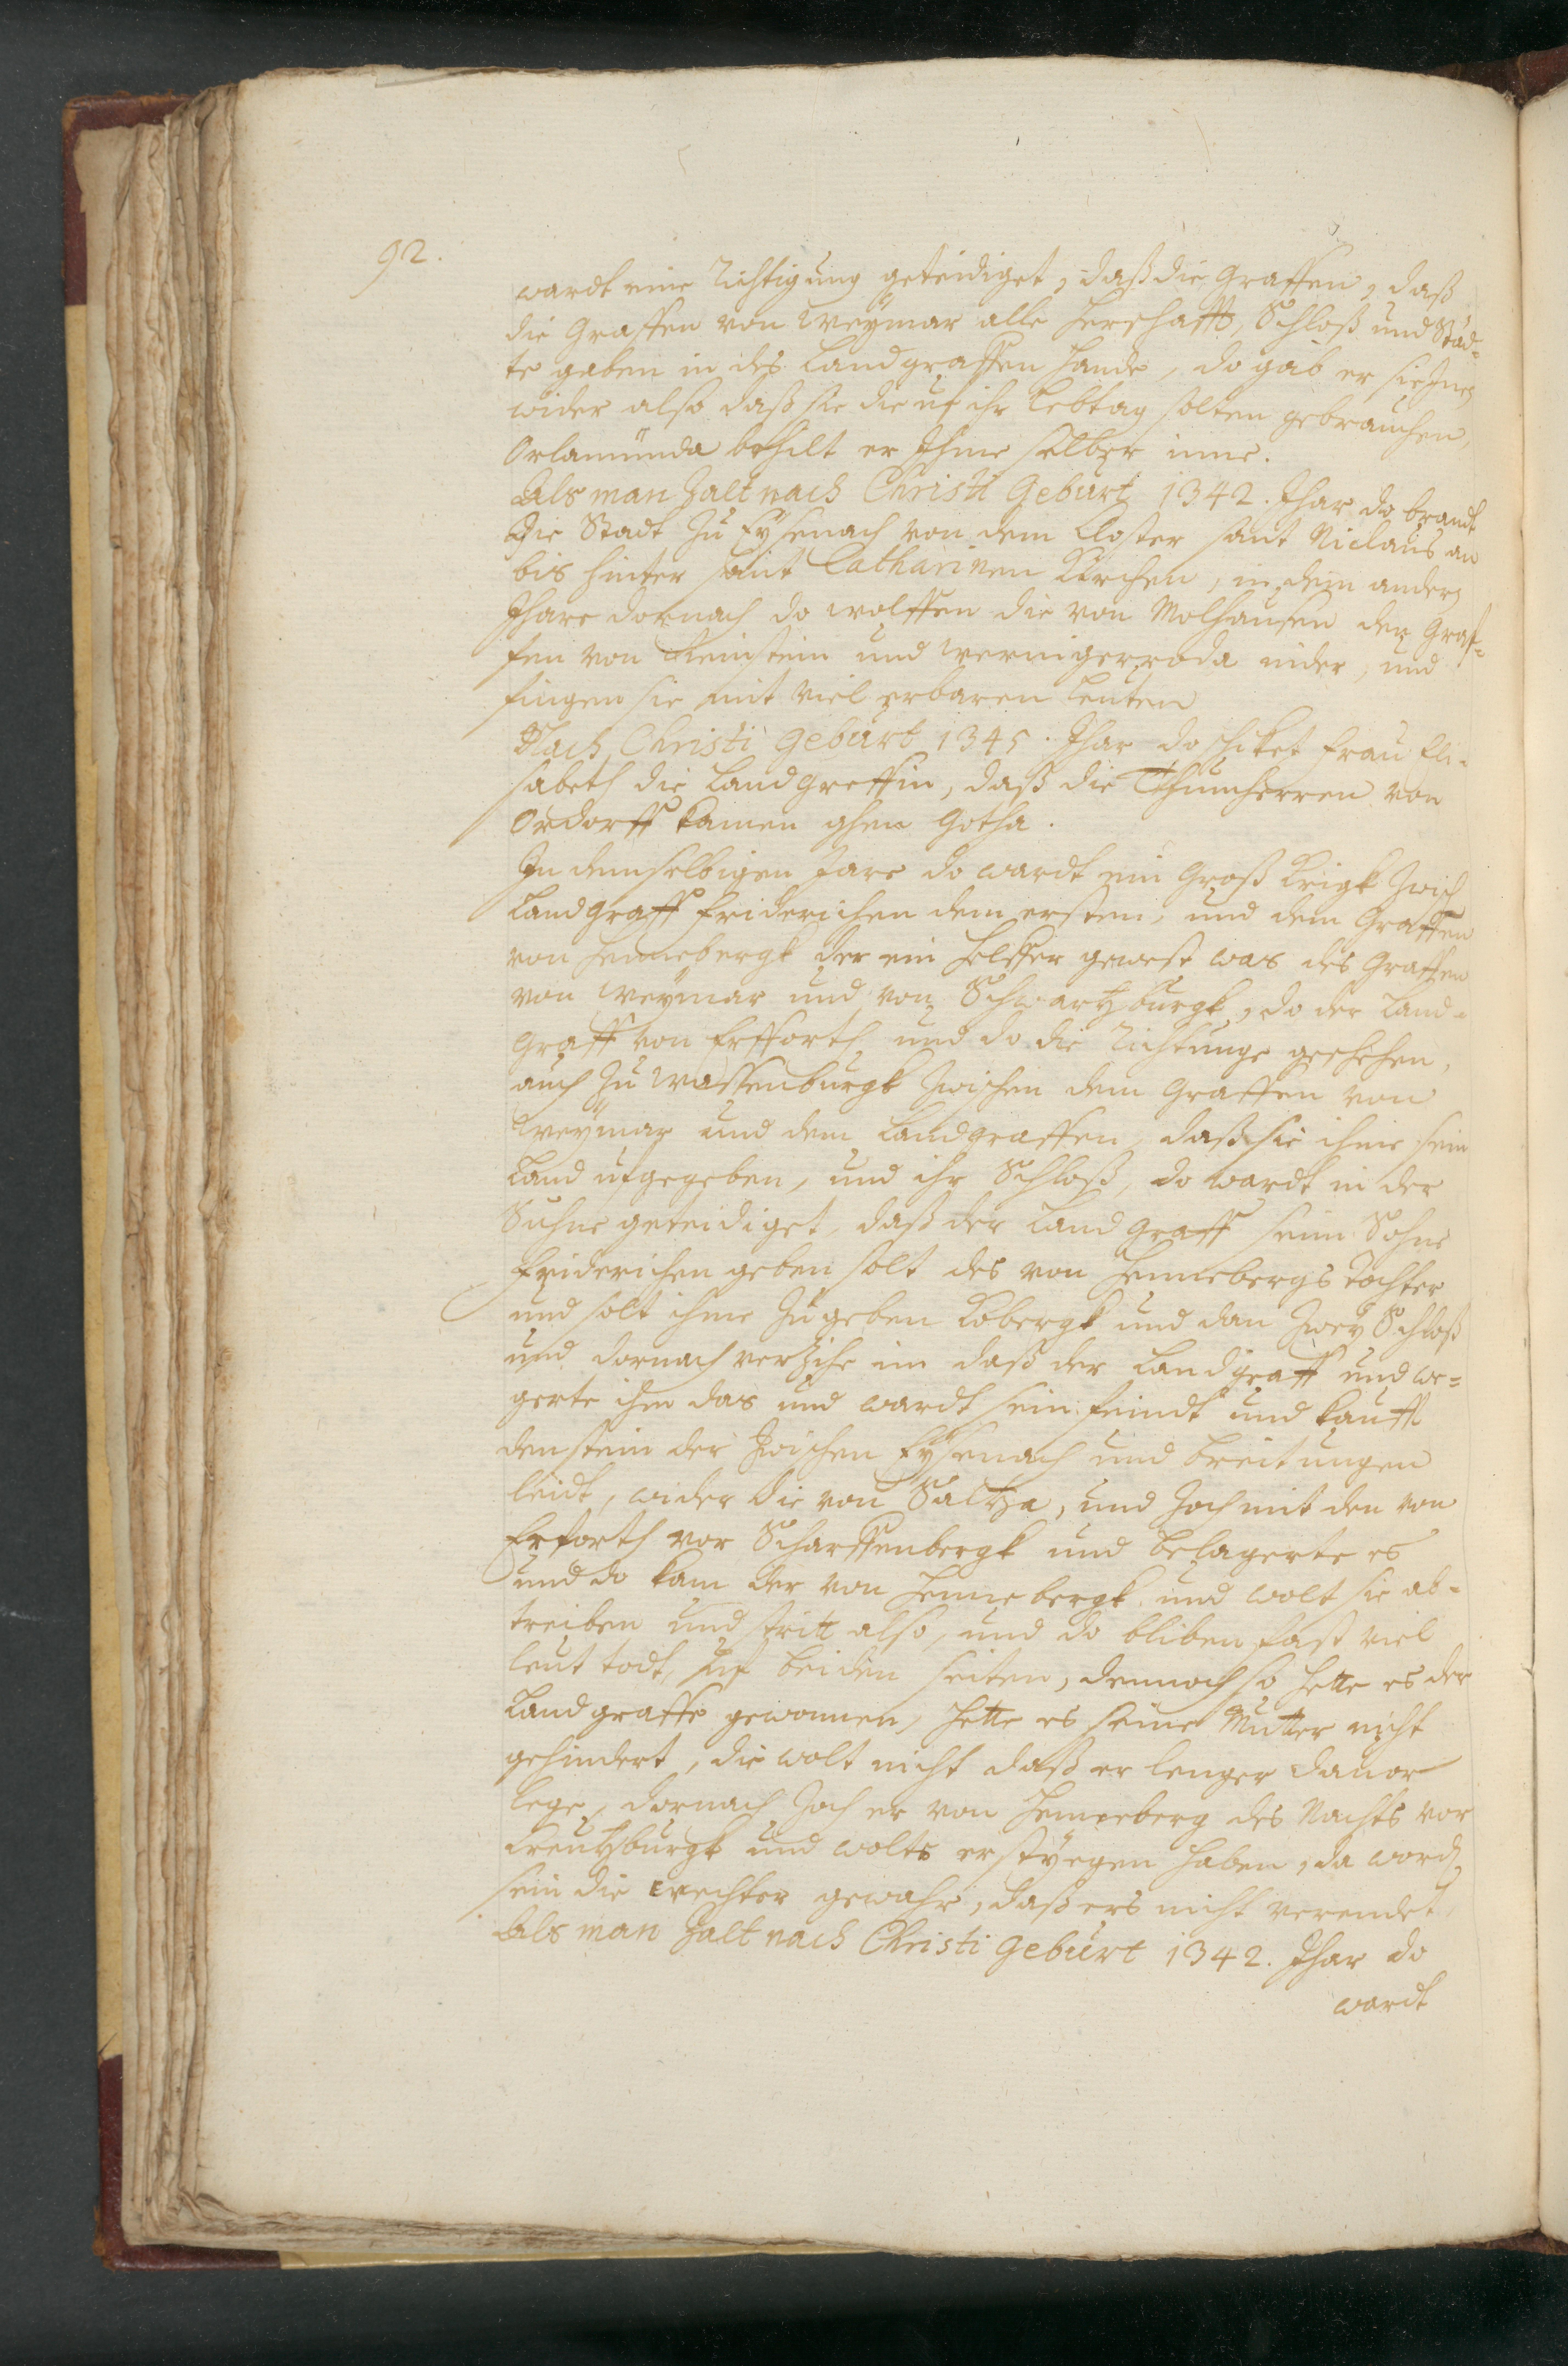 92.
wardt eine Richtigung geteidiget, daß die Graffen, daß
die Graffen von Weÿmar alle Herschafft, Schloß und Städ-
te gaben in des Landgraffen Hande, do gab er sie Ihnen
wider also daß sie die uf ihr Lebtag solten gebrauchen,
Orlamünda behilt er Ihme selber inne.
Als man Zalt nach Christi Geburt 1342. Jhar do brandt
die Stadt zu Eÿsenach von dem Closter sant Niclaus an
bis hinter sant Catharinen Kirchen, in dem andern
Jhare dornach do wolffen die von Molhausen den Graf-
fen von Reinstein und Wernigerroda nider, und
fingen sie mit viel erbaren Leuten
Nach Christi Geburt 1345. Jhar do schicket Frau Eli-
sabeth die Landgreffin, daß die Thumherren von
Ordorff kamen ghen Gotha.
In demselbigen Jare do wardt ein Groß Krigk zwisch
Landgraff Friderichen dem ersten, und dem Graffen
von Hennebergk der ein Helffer gewest was des Graffen
von Weÿmar und von Schwartzburgk, do der Land-
graff von Erfforth und do die Richtunge geschehen,
auch zu Wassenburgk zwischen dem Graffen von
Weÿmar und dem Landgraffen, daß sie ihme sein
Land ufgegeben, und ihr Schloß, do wardt in der
Suhne geteidiget, daß der Landgraff seim Sohne
Friderichen geben solt des von Hennebergs Tochter
und solt ihme zu geben Kobergk und dan zweÿ Schloß
und dornach verzihe im daß der Landgraff und we-
gerte ihm das und wardt sein feindt und kaufft
den stein der zwischen Eÿsenach und Breitungen
leidt, wider die von Saltza, und zoch mit den von
Erforth vor Scharffenbergk und belagerte es
und do kam der von Hennebergk und wolt sie ab-
treiben und stritt also, und do bliben fast viel
leut todt, uf beiden seiten, dennoch so hette es der
Landgraffe gewonnen, hette es seine Mutter nicht
gehindert, die wolt nicht daß er lenger dauor
lege, dornach zoch er von Henneberg des Nachts vor
Creutzburgk und wolts erstÿegen haben, da word
sein die wechter gewahr, daß ers nicht verendet.
Als man Zalt nach Christi Geburt 1342. Jhar do
wardt